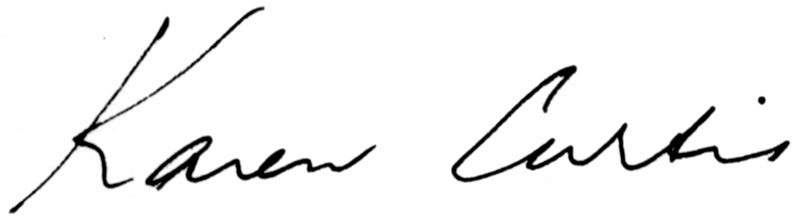 Karen Curtis